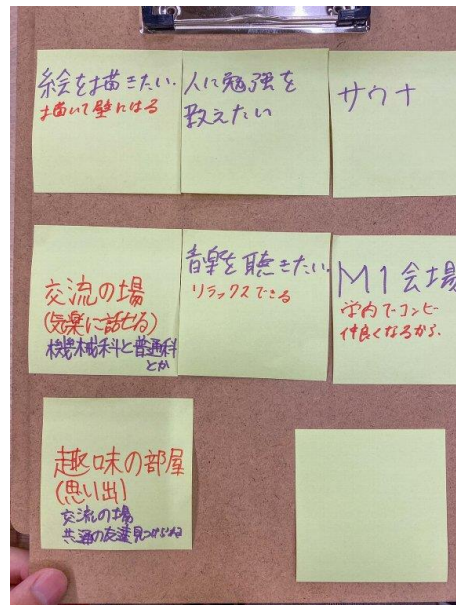 絵を描きたい.
描いて壁にはる
人に勉強を
教えたい
サウナ
交流の場
(気楽に話せる)
機械科と普通科
とか
音楽を聴きたい.
リラックスできる
M1会場
学内でコンビ
仲良くなるから.
趣味の部屋
(思い出)
交流の場
共通の友達見つけられる